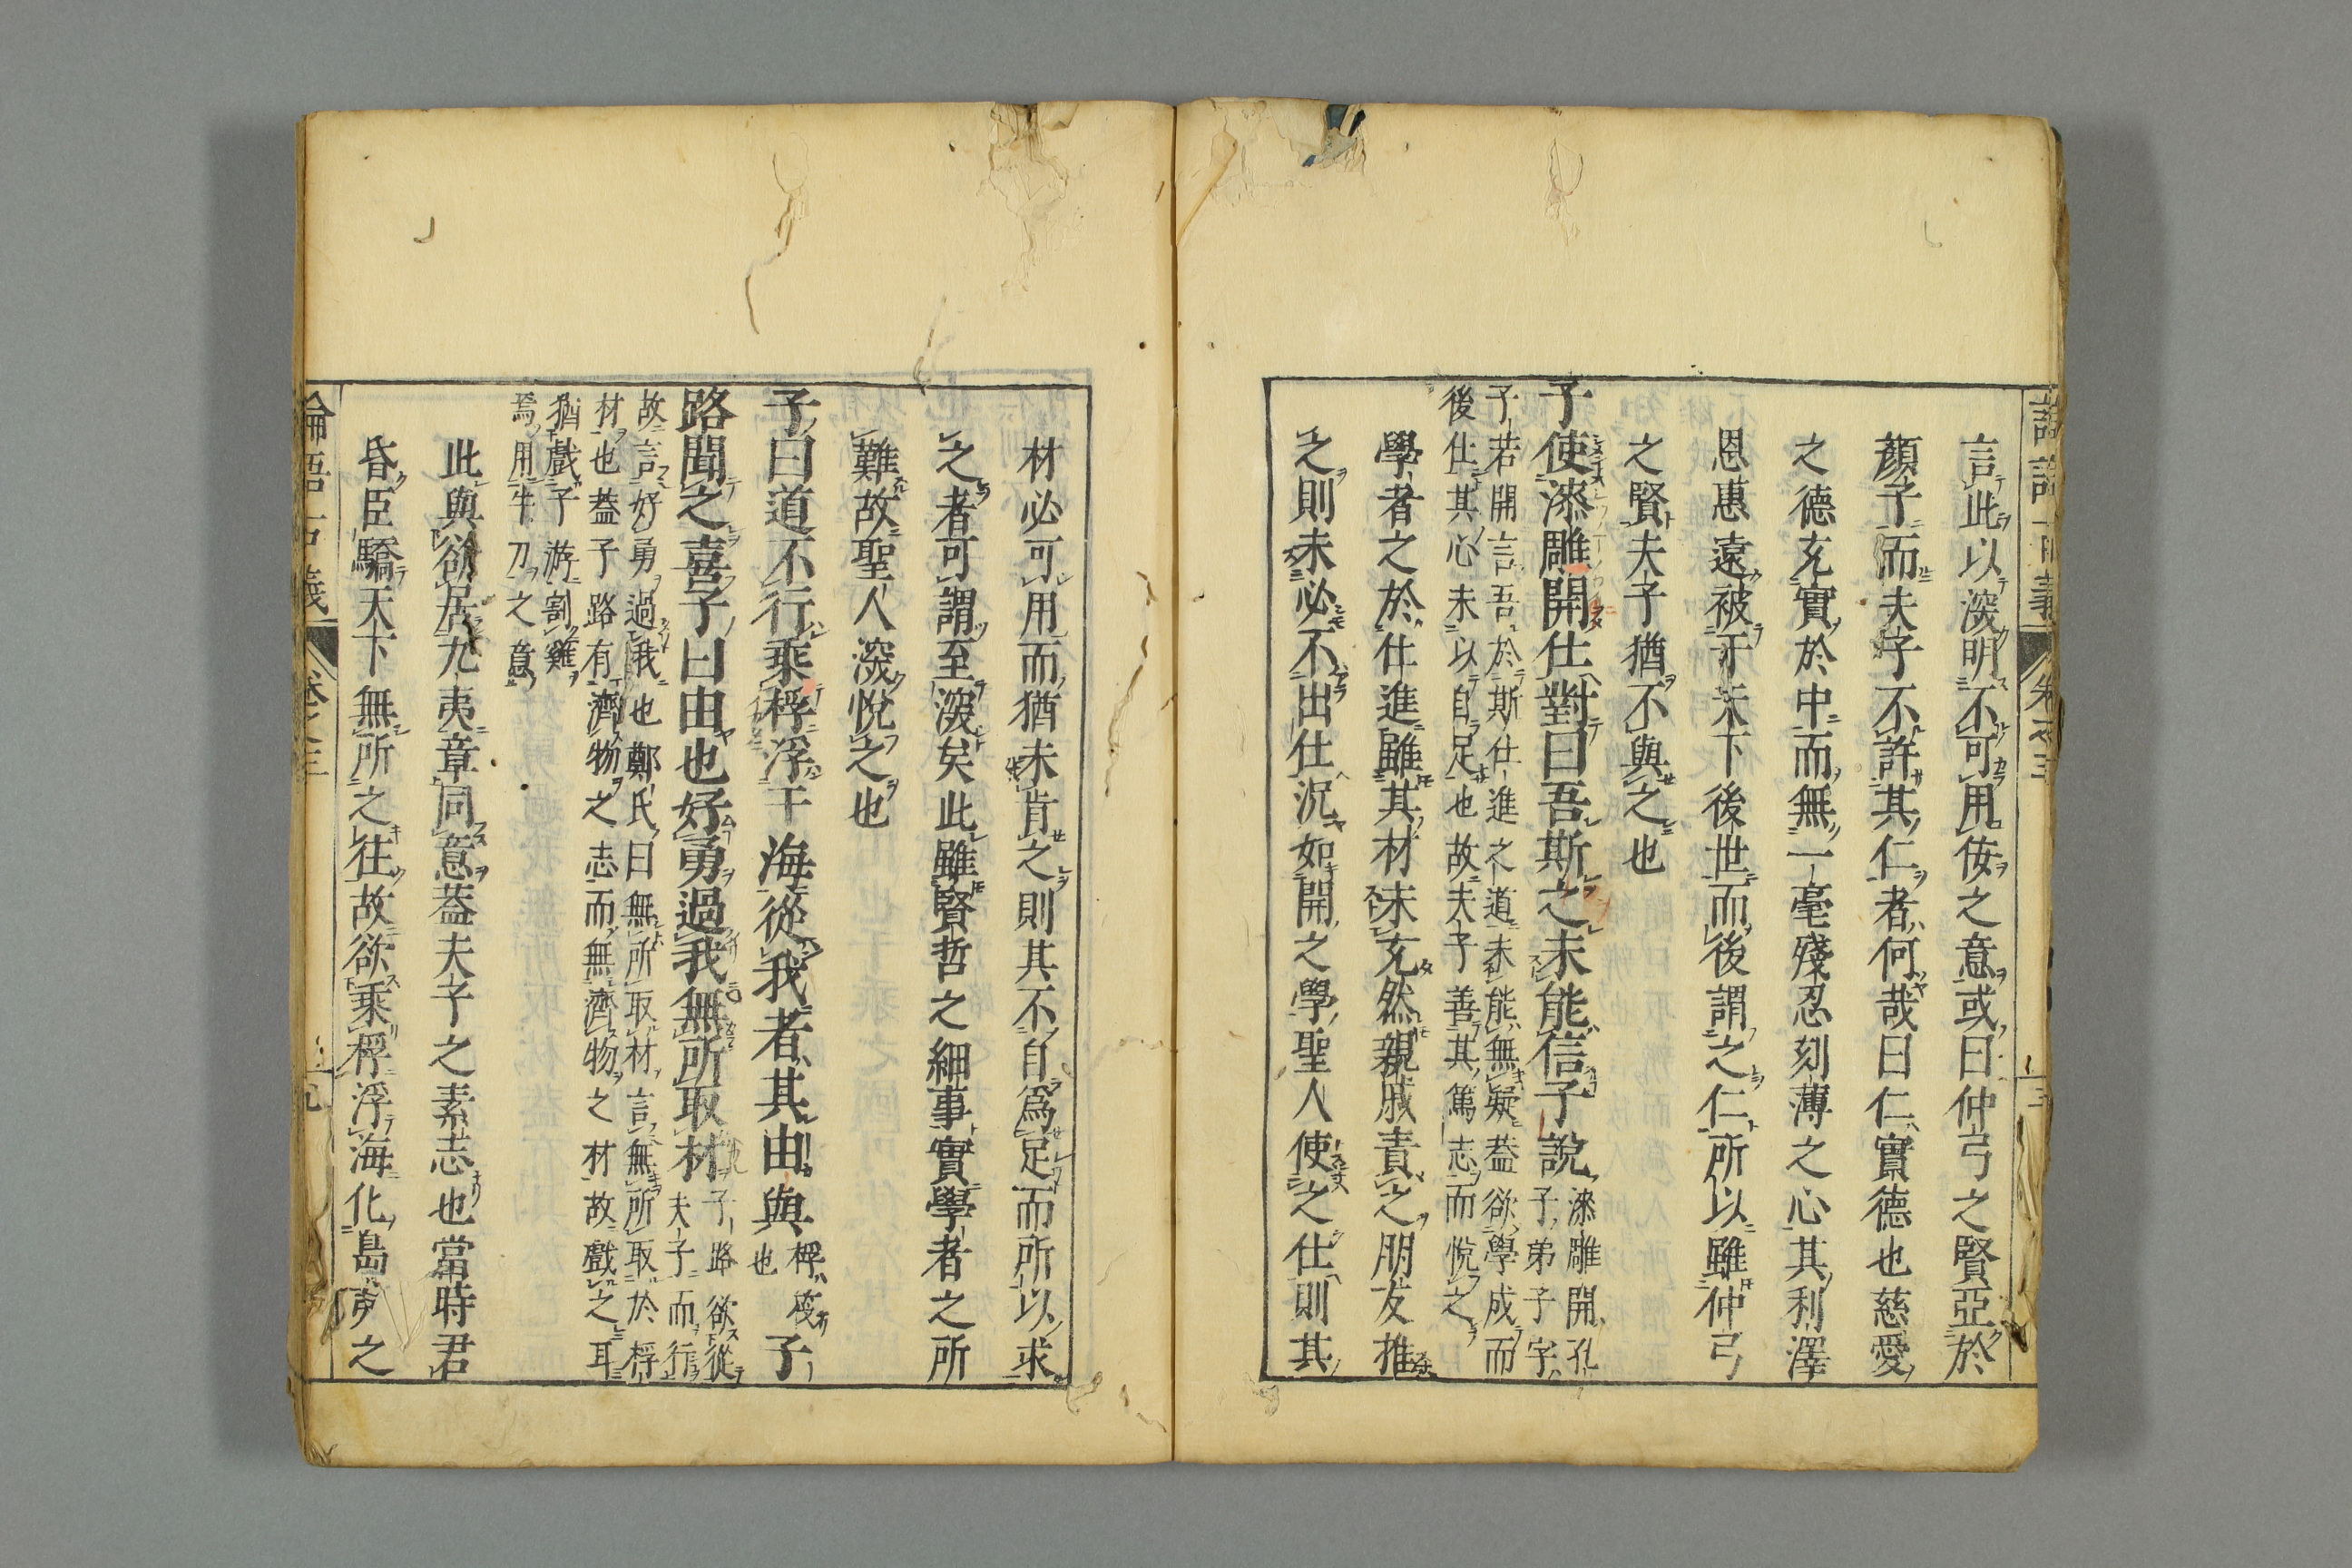 言此以深明不可用佞之意或曰仲弓之賢亞於
顏子而夫子不許其仁者何哉曰仁實德也慈愛
之德充實於中而無一毫殘忍刻薄之心其利澤
恩惠遠被于天下後世而後謂之仁所以雖仲弓
之賢夫子猶不與之也
子使漆雕開仕對曰吾斯之未能信子說
漆雕開孔
子弟子字
子若開言吾於斯仕進之道未能無疑蓋欲學成而
後仕其心未以自足也故夫子善其篤志而悅之
學者之於仕進雖其材未充然親戚責之朋友推
之則未必不出仕況如開之學聖人使之仕則其
材必可用而猶未肯之則其不自爲足而所以求
之者可謂至深矣此雖賢哲之細事實學者之所
難故聖人深悅之也
子曰道不行乘桴浮于海從我者其由與
桴筏
也
子
路聞之喜子曰由也好勇過我無所取材
子路欲從
夫子而行
故言好勇過我也鄭氏曰無所取材言無所取於桴
材也蓋子路有濟物之志而無濟物之材故戲之耳
猶戲子游割雞
焉用牛刀之意
此與欲居九夷章同意蓋夫子之素志也當時君
昏臣驕天下無所之往故欲乘桴浮海化島夷之
論語古義
卷之三